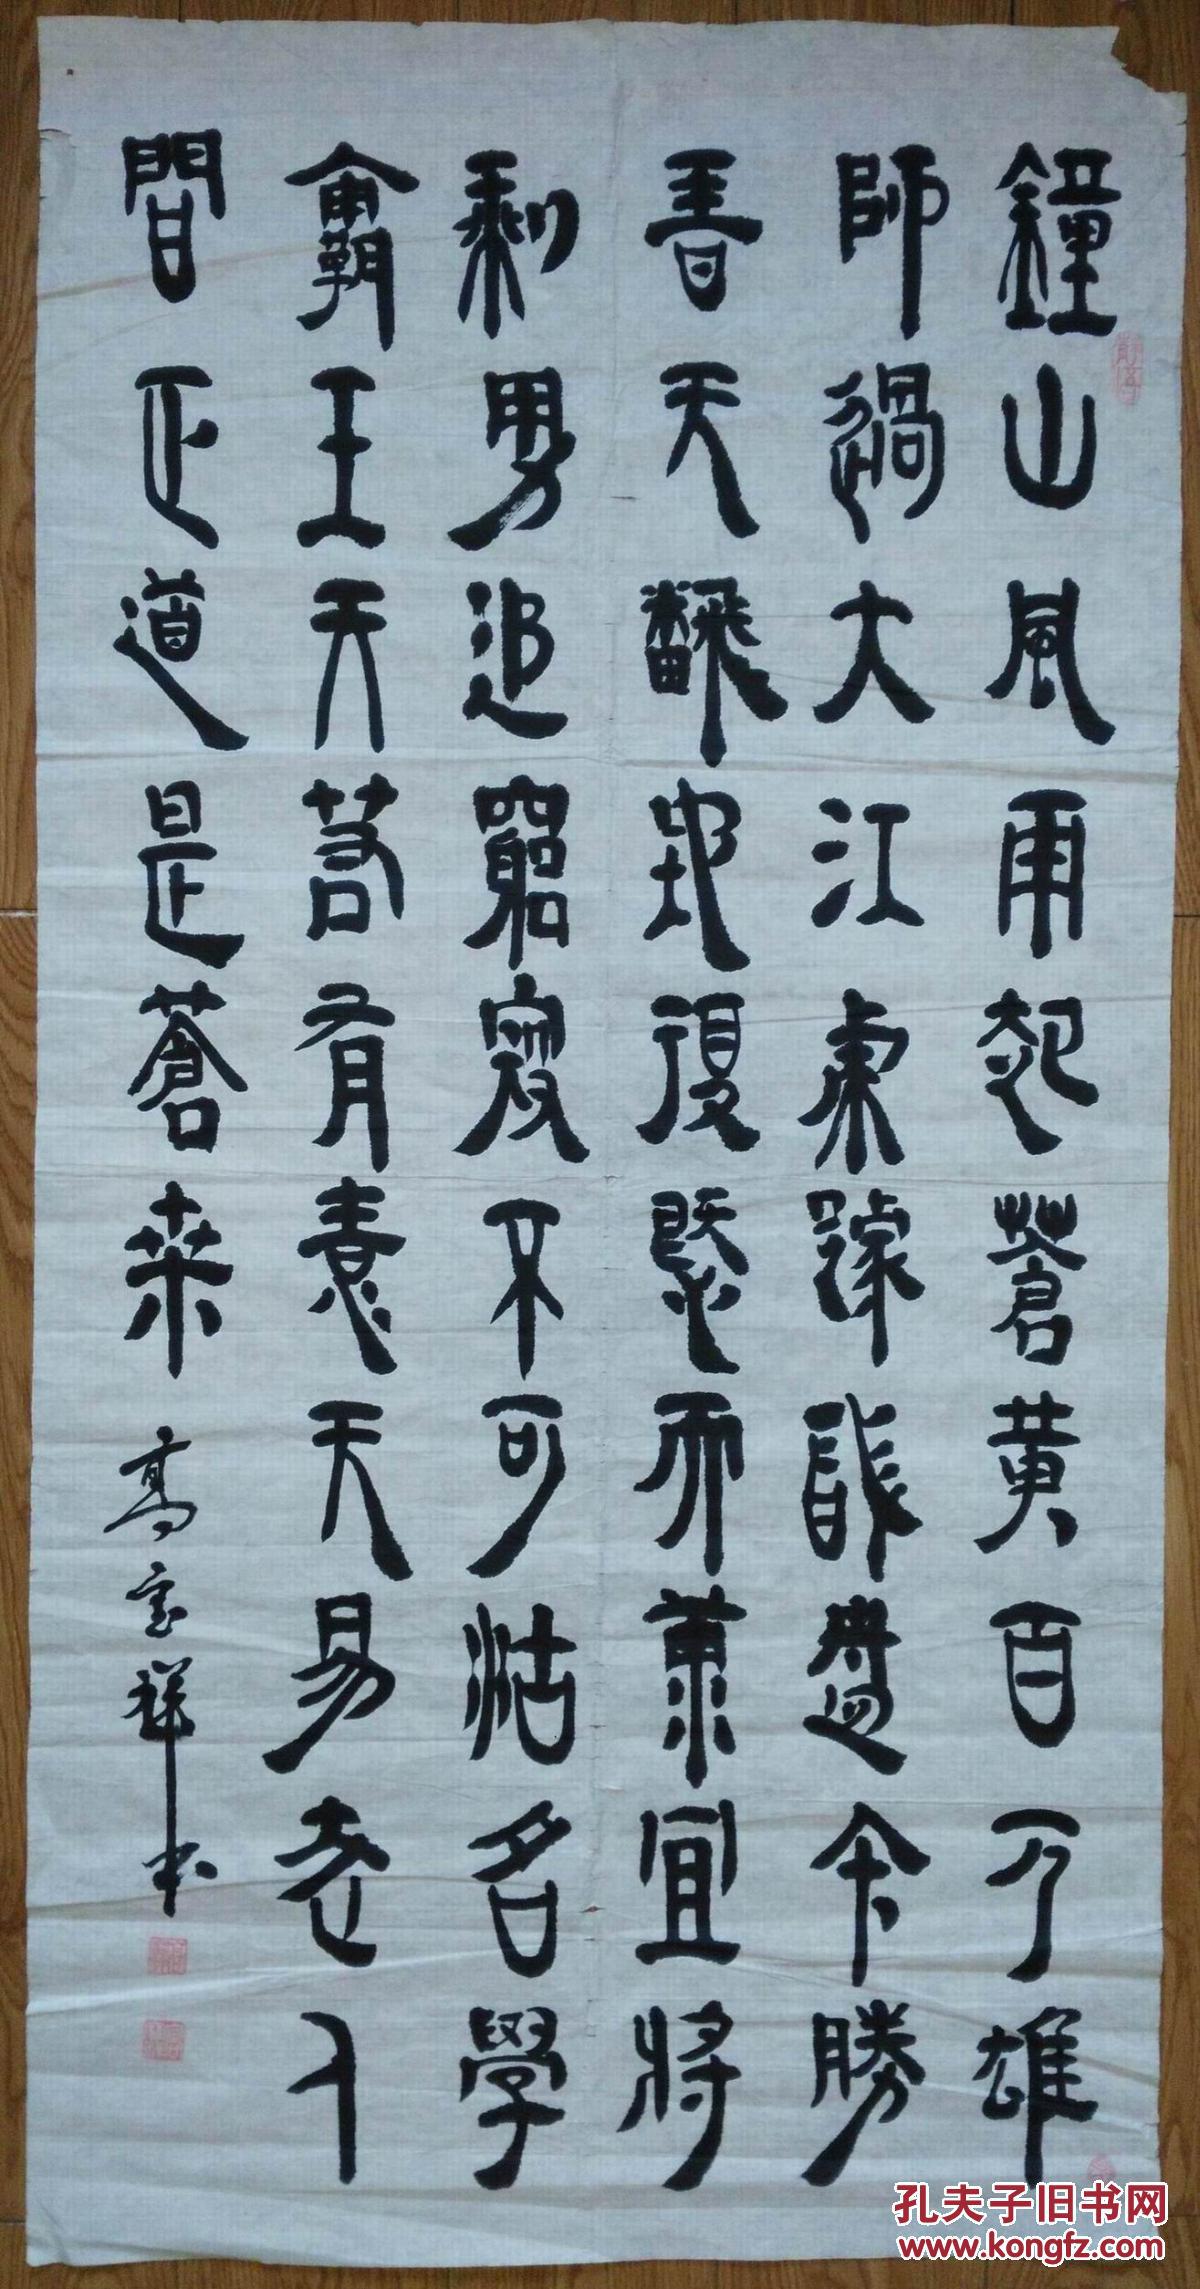 鐘山風雨起蒼黃百万雄
師過大江虎踞龍盤今勝
昔天飜地復慨而慷宜將
剩勇追窮寇不可沽名學
霸王天若有情天易老人
間正道是蒼桒 高宝祥书
孔夫子旧书网
www.kongfz.com